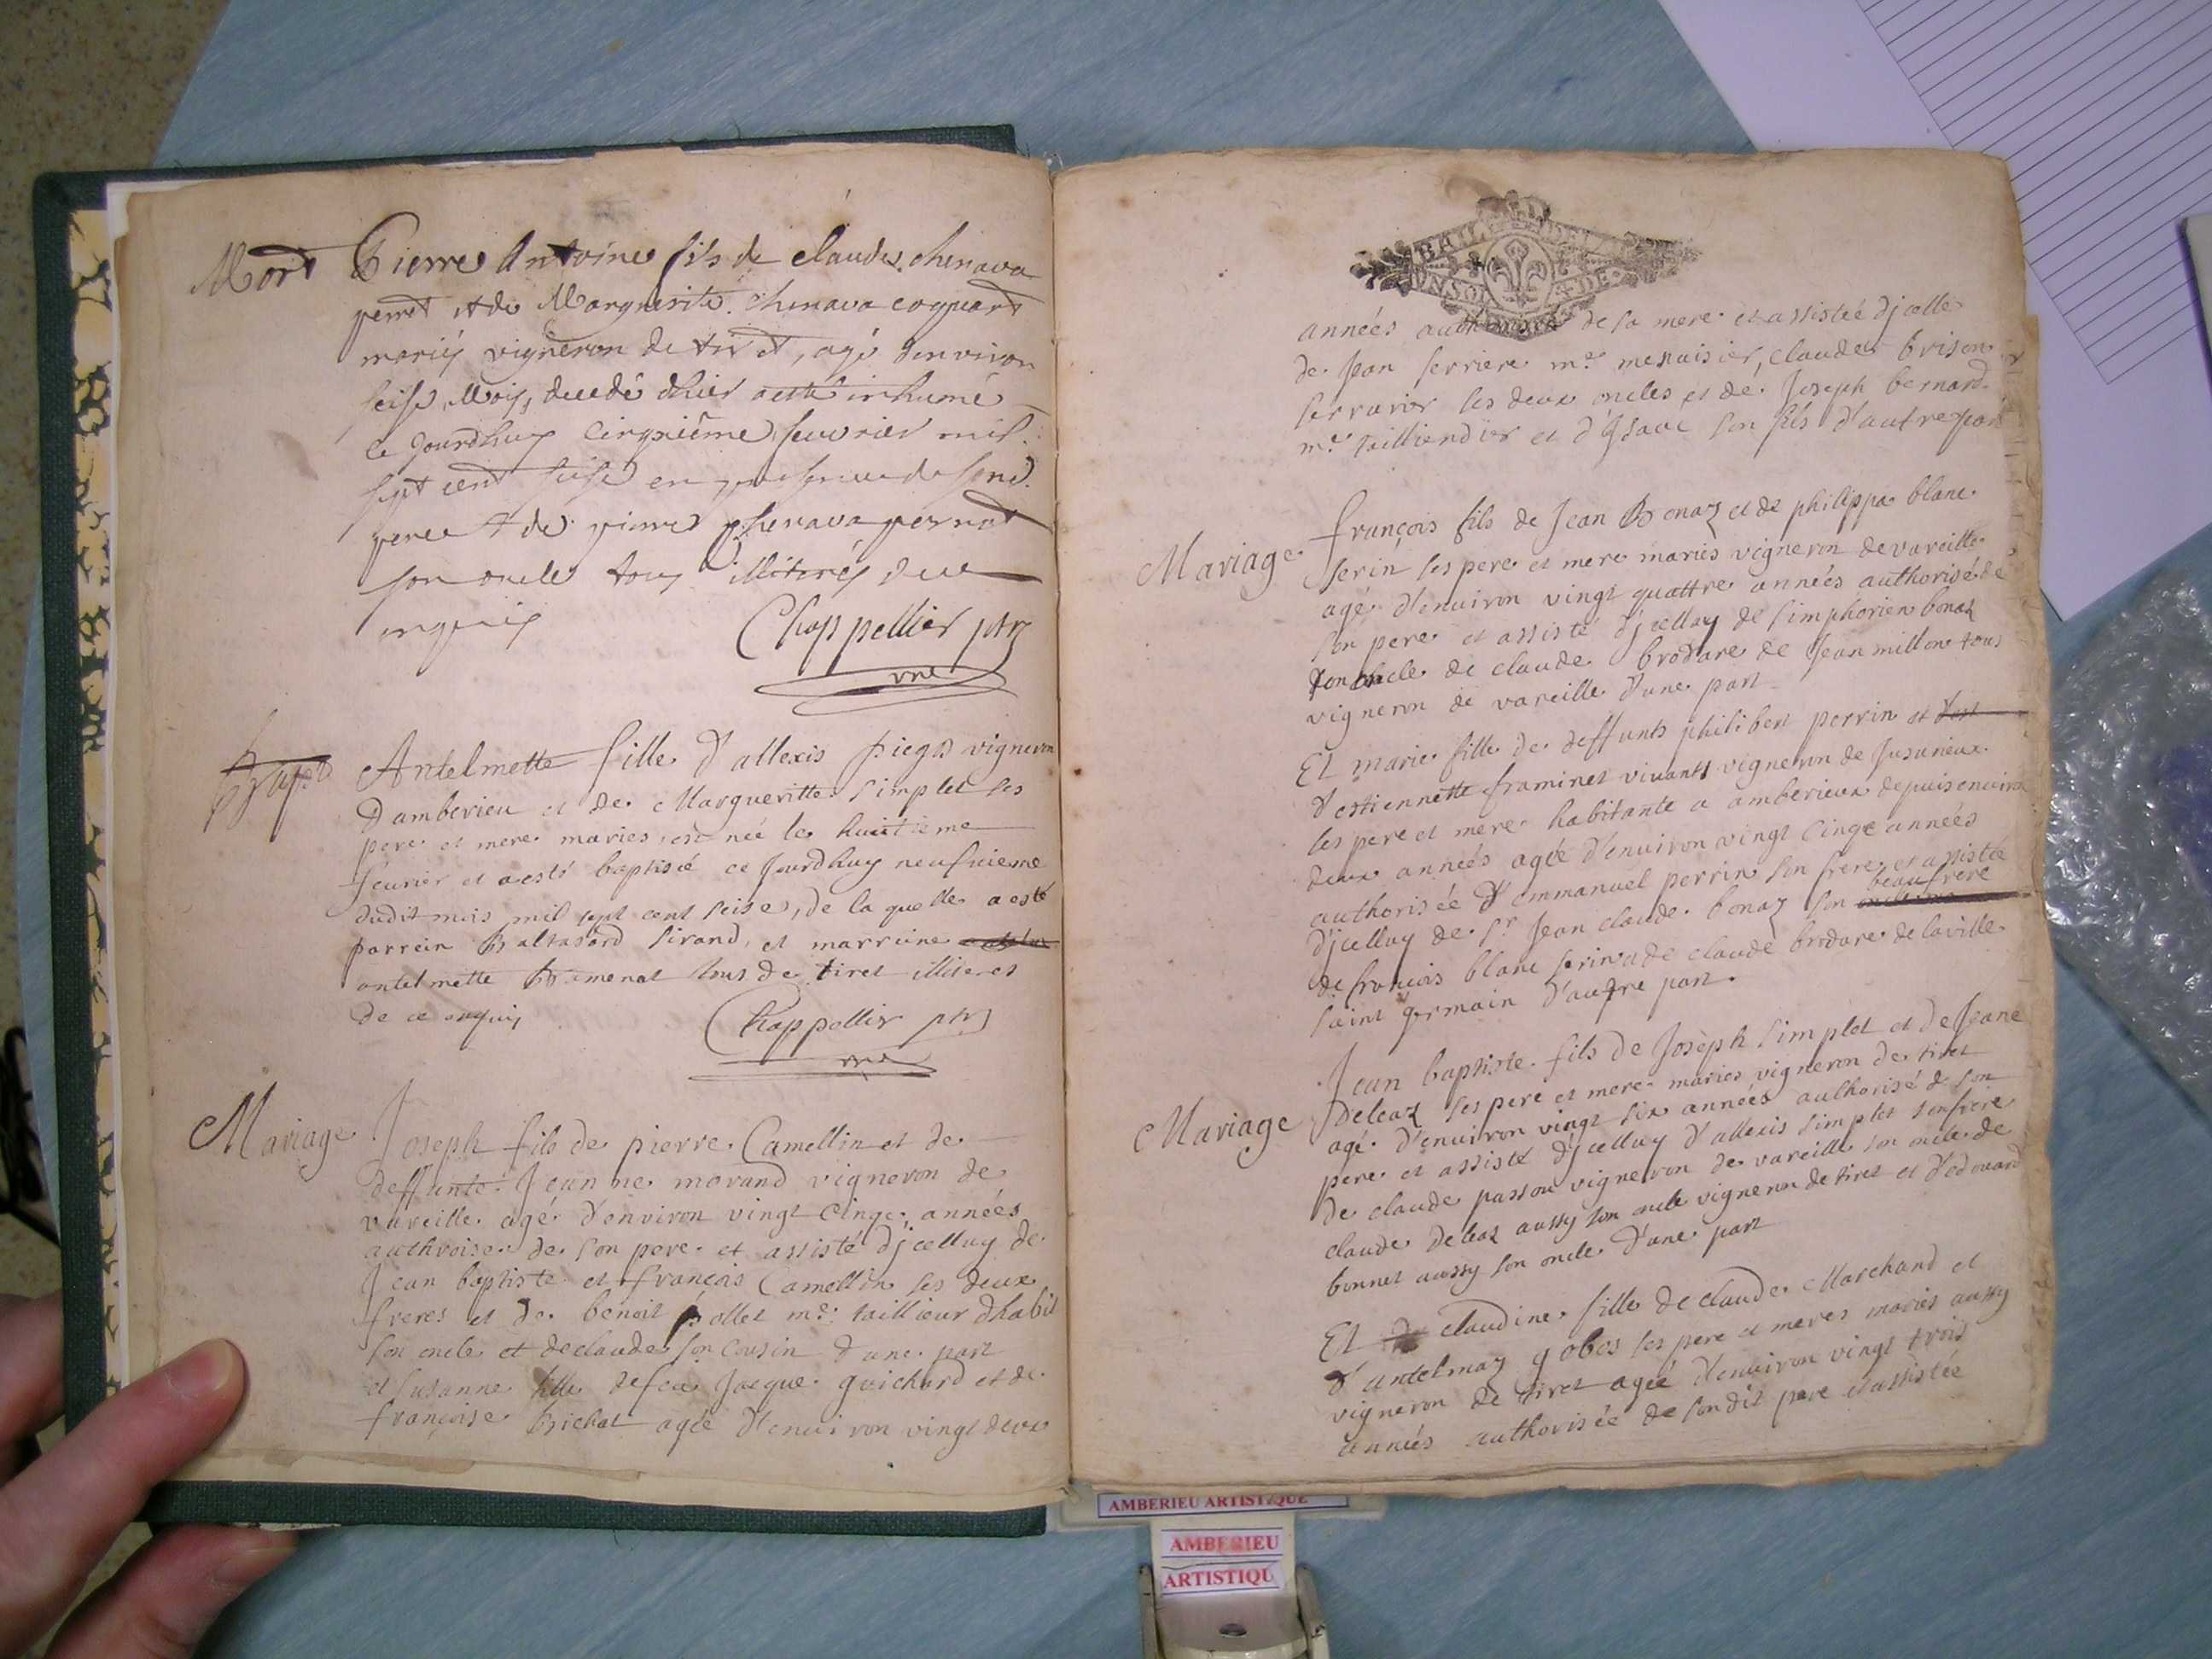 Mort Pierre Antoine fils de claude chenava
perret et de Marguerite chenava coquard
mariés vigneron de tiret, agé denviron
seise mois, decedé dhier a esté inhumé
ce jourdhuy cinquiême feuvrier mil
sept cent seise en presence de sond.
pere et de pierre chenava perret
son oncle tous illiterés de ce
enquis
Chappellier ptre
vire
Bapt. Antelmette fille d'allexis piegd vigneron
d'amberieu et de Margueritte simplet ses
pere et mere maries, est née le huictieme
feurier et a esté baptisée ce jourdhuy neufvieme
dudit mois mil sept cent seise, de la quelle a esté
parrein Baltasard sirand, et marreine
antelmette Bemenat tous de tiret illiteres
de ce enquis
Chappellier ptre
vire
Mariage Joseph fils de pierre Camellin et de
deffunte Jeanne morand vigneron de
vareille agé d'environ vingt cinqe années
authroise de son pere et assisté djcelluy de
Jean baptiste et françois Camellin ses deux
freres et de benoit pollet me. taillieur dhabit
son oncle et de claude son cousin d'une part
et susanne fille de feu Jacque guichard et de
françoise Brichat agée d'enuiron vingt deux
BAIL
années authorisée de sa mere et assistée djcelle
de Jean serriere me. menuisier, claude brison
serrurier ses deux oncles et de Joseph bernard
me. tailliendier et d'Isaac son fils d'autre part
Mariage françois fils de Jean Bonaz et de philippa blanc
serin ses pere et mere mariés vigneron de vareille
agé d'enuiron vingt quattre années authorisé de
son pere et assisté djcelluy de simphorien bonaz
son oncle de claude brodare de Jean millon tous
vigneron de vareille d'une part
Et marie fille de deffunts philibert perrin et
d'estiennette framinet vivants vigneron de Jusurieux
ses pere et mere habitante a amberieux depuis enuiron
deux années agée d'enuiron vingt cinqe années
authorisée d'emmanuel perrin son frere et assistée
djcelluy de sr. Jean claude bonaz son beau frere
de françois blanc serin et de claude brodare de laville
saint germain d'autre part.
Mariage Jean baptiste fils de Joseph simplet et de Jeane
deleaz ses pere et mere mariés vigneron de tiret
agé d'enuiron vingt six années authorisé de son
pere et assisté djcelluy d'allexis simplet son frere
de claude passou vigneron de vareille son oncle de
claude deleaz aussy son oncle vigneron de tiret et d'edouard
bonnet aussy son oncle d'une part
Et claudine fille de claude Marchand et
d'antelmaz gobes ses pere et meres mariés aussy
vigneron de tiret agée d'enuiron vingt trois
années authorisée de sondit pere et assistée
AMBERIEU ARTISTIQUE
AMBERIEU
ARTISTIQU